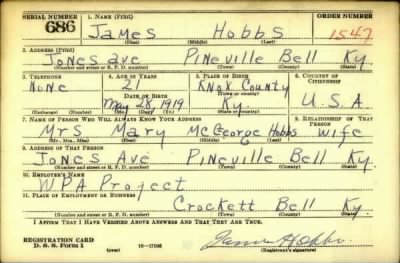 SERIAL NUMBER 1. NAME (Print) ORDER NUMBER
686 James Hobbs 1547
(First) (Middle) (Last)
2. ADDRESS (Print)
Jones ave Pineville Bell Ky.
(Number and street or R. F. D. number) (Town) (County) (State)
3. TELEPHONE 4. AGE IN YEARS 5. PLACE OF BIRTH 6. COUNTRY OF CITIZENSHIP
None 21 Knox County
DATE OF BIRTH (Town or county)
May 28, 1919 Ky. U.S.A
(Mo.) (Day) (Yr.) (State or country)
7. NAME OF PERSON WHO WILL ALWAYS KNOW YOUR ADDRESS 8. RELATIONSHIP OF THAT PERSON
Mrs Mary McGeorge Hobbs wife
(Mr., Mrs., Miss) (First) (Middle) (Last)
9. ADDRESS OF THAT PERSON
Jones Ave Pineville Bell Ky.
(Number and street or R. F. D. number) (Town) (County) (State)
10. EMPLOYER'S NAME
WPA Project
11. PLACE OF EMPLOYMENT OR BUSINESS
Crockett Bell Ky.
(Number and street or R. F. D. number) (Town) (County) (State)
I AFFIRM THAT I HAVE VERIFIED ABOVE ANSWERS AND THAT THEY ARE TRUE.
REGISTRATION CARD James Hobbs
D. S. S. Form 1 (over) (Registrant's signature)